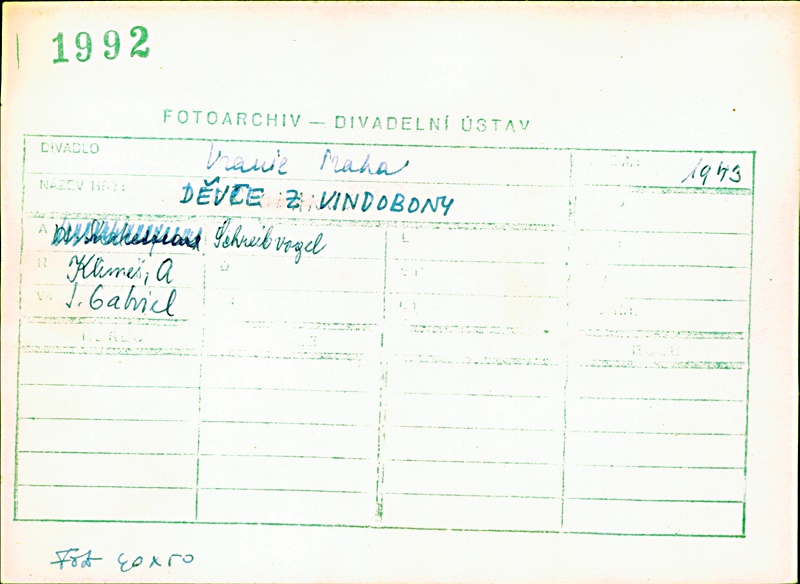 1992
FOTOARCHIV — DIVADELNÍ ÚSTAV
DIVADLO Uranie Praha 1943
NÁZEV HRY: DĚVČE Z VINDOBONY
A Schreibvogel L
R Klimeš, A
J. Gabriel
HEREC
Fot 40x50